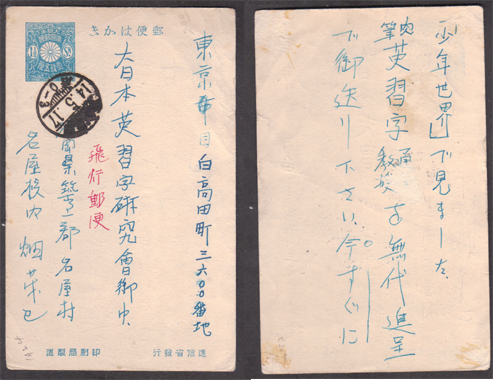 郵便はかき
東京市目白高田町三六〇〇番地
大日本英習字研究會御中
飛行郵便
名屋村
名屋校内 畑
14.5.17
0-3
遞信省發行
印刷局製造
「少年世界」で見ました
肉筆英習字を無代進呈
で御送り下さい、今すぐに